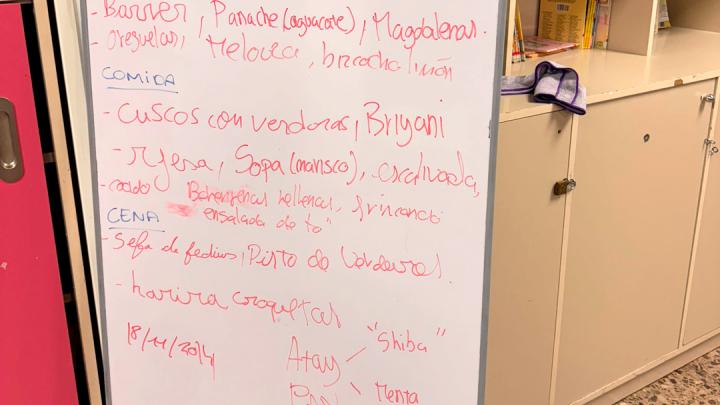 - Barrer, Panache (aguacate), Magdalenas.
- Oreguelas, Meloua, bizcocho limón
COMIDA
- Cuscos con verdoras, Briyani
- rfesa, Sopa (marisco), escalivada,
- cocido Berengenas rellenas, fricandó
ensalada de to"
CENA
- Sefa de fedius, Pisto de Verdures.
- harira croquetas
18/11/2014
Atay "Shiba"
Menta